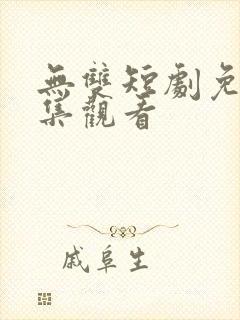 無雙短劇免
集觀看
戚阜生